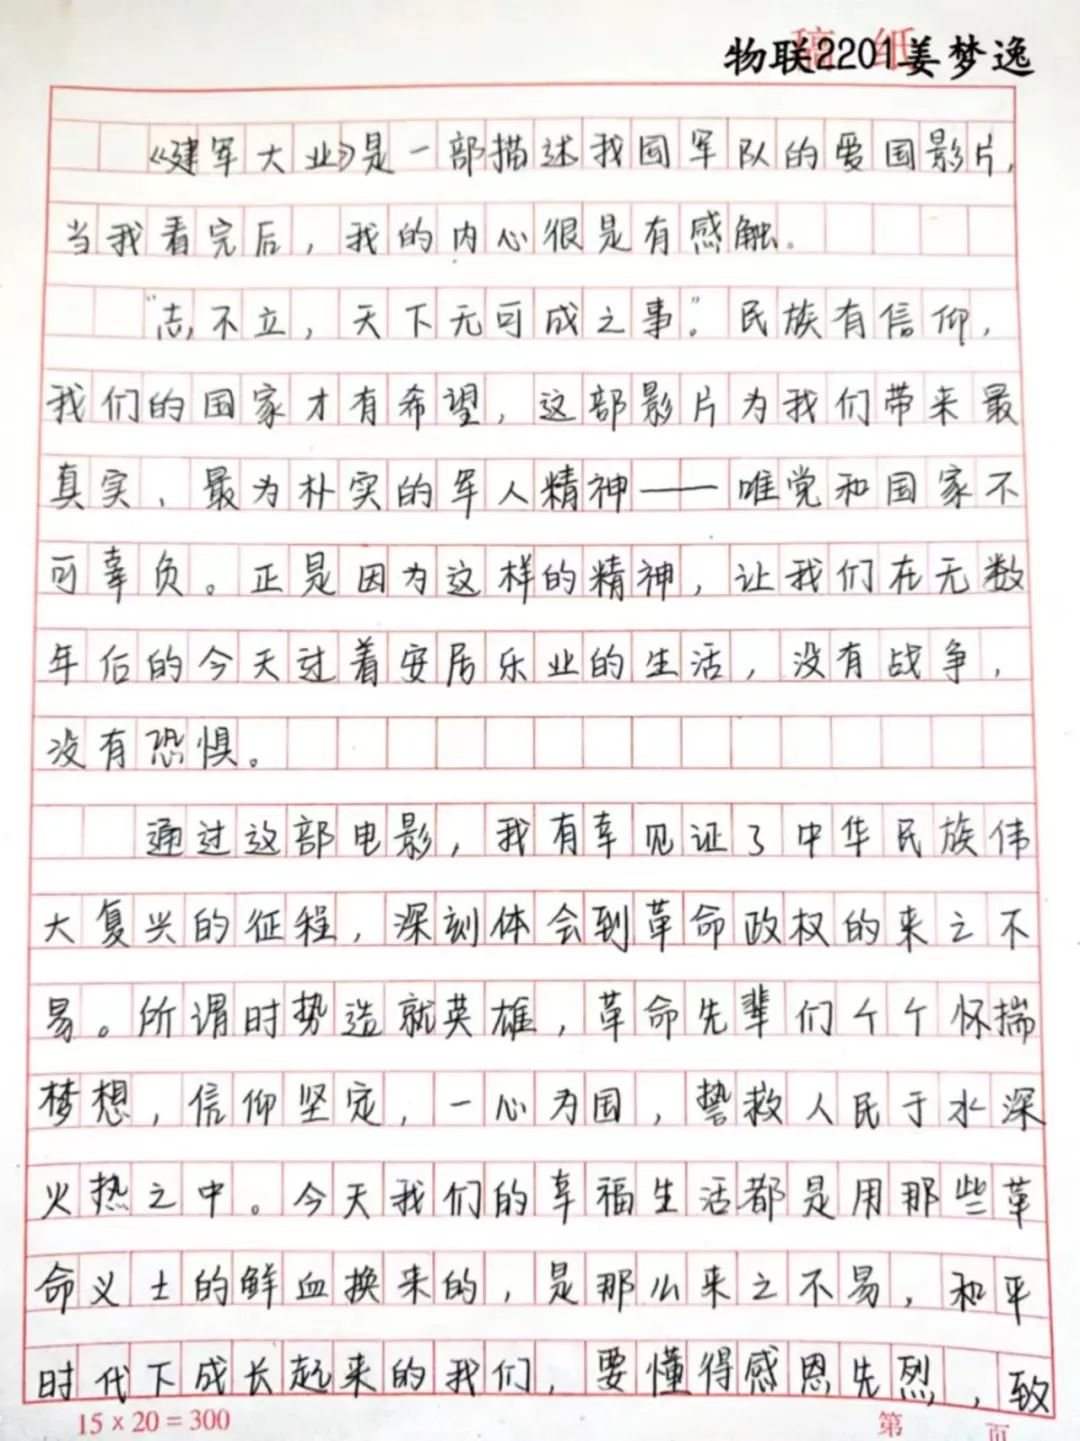 稿纸
物联2201姜梦逸
《建军大业》是一部描述我国军队的爱国影片，
当我看完后，我的内心很是有感触。
“志不立，天下无可成之事”。民族有信仰，
我们的国家才有希望，这部影片为我们带来最
真实、最为朴实的军人精神——唯党和国家不
可辜负。正是因为这样的精神，让我们在无数
年后的今天过着安居乐业的生活，没有战争，
没有恐惧。
通过这部电影，我有幸见证了中华民族伟
大复兴的征程，深刻体会到革命政权的来之不
易。所谓时势造就英雄，革命先辈们个个怀揣
梦想，信仰坚定，一心为国，誓救人民于水深
火热之中。今天我们的幸福生活都是用那些革
命义士的鲜血换来的，是那么来之不易，和平
时代下成长起来的我们，要懂得感恩先烈，致
15×20=300
第 页